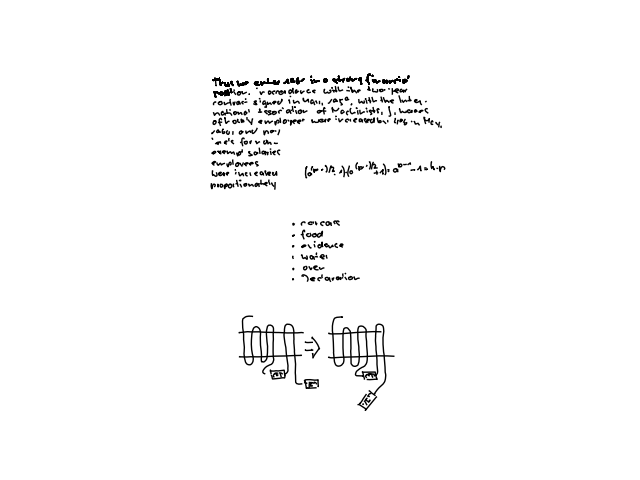 Thus we enter 1960 in a strong financial
position. in accordance with the two-year
contract signed in May, 1959, with the Inter-
national Association of Machinists, wages
of hourly employees were increased in May,
1960 and pay
for non-
exempt salaries
employees
were increased
proportionately
(a^(p-1)/2 - 1)·(a^(p-1)/2 + 1) = a^p-1 - 1 = h·p
• food
• evidence
• water
• over
• Declaration